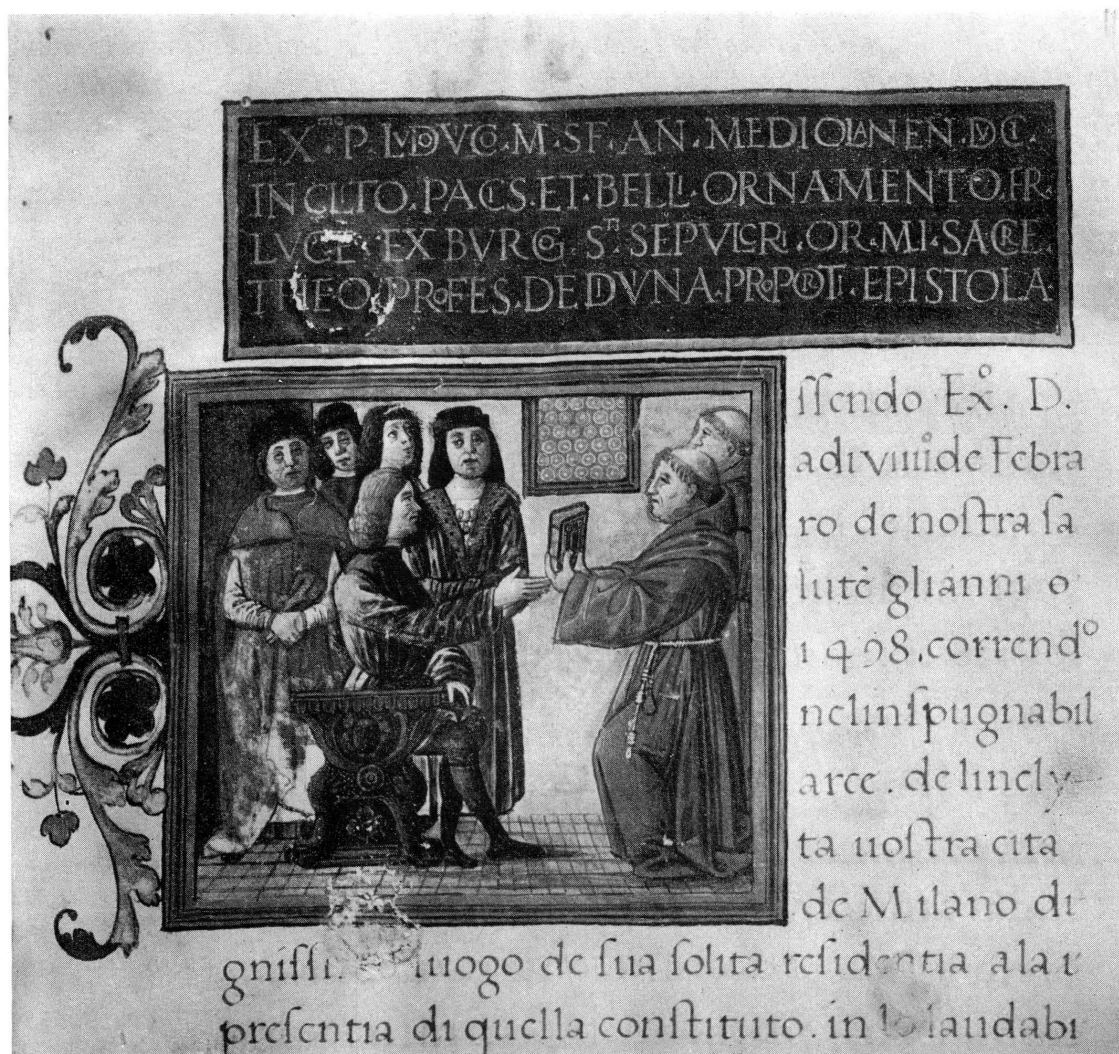 EX.mo P. LVDOVICO. M. SF. AN. MEDIOLANEN. DVCI.
INCLITO. PACIS. ET. BELLI. ORNAMENTO. FR.
LVCE EX BVRGO. Sti SEPVLCRI. OR. MI. SACRE.
THEO. PROFES. DE DIVINA. PROPORTI. EPISTOLA.
ſſendo Exº. D.
adi viiiiº. de Febra
ro de noſtra ſa
lutè glianni o
1498. correndº
nelinſpugnabil
arce. de lincly
ta noſtra cita
de Milano di
luogo de ſua ſolita reſidentia a la
preſentia di quella conſtituto. in laudabi